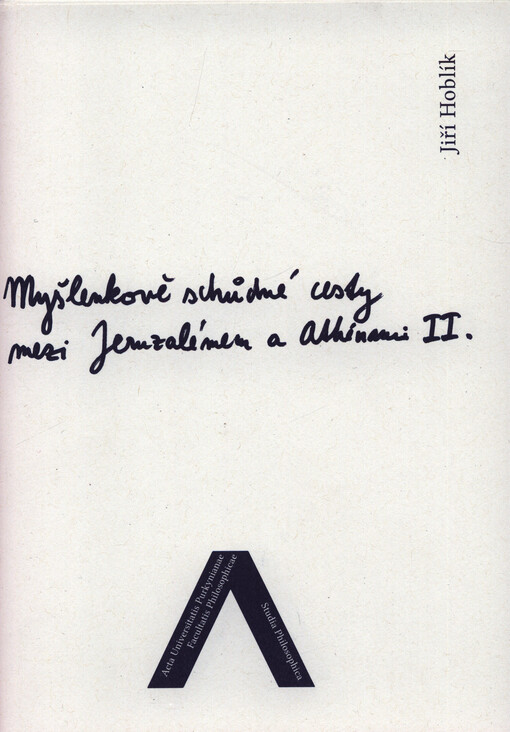 Jiří Hoblík
Myšlenkově schůdné cesty
mezi Jeruzalémem a Athénami II.
Acta Universitatis Purkynianae
Facultatis Philosophicae
Studia Philosophica